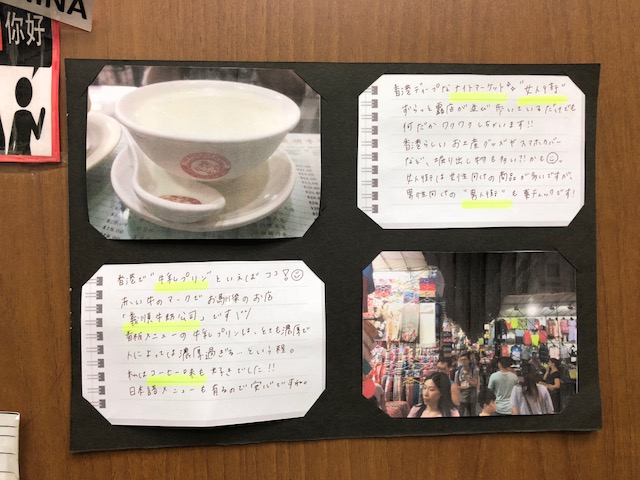 INA
你好
香港ディープなナイトマーケット "女人街"
ずらっと露店が並び 歩いているだけでも
何だかワクワクしちゃいます!!
香港らしい お土産グッズやスマホカバー
など、掘り出し物も多い?!かも。
女人街は女性向けの商品が多いですが、
男性向けの "男人街" も要チェックです!
香港で "牛乳プリン" といえば ココ!
赤い牛のマークでお馴染のお店
「義順牛奶公司」です
看板メニューの牛乳プリンは、とても濃厚で
人によっては濃厚過ぎる…という程。
私はコーヒー味も大好きでした!!
日本語メニューも有るので安心ですね。